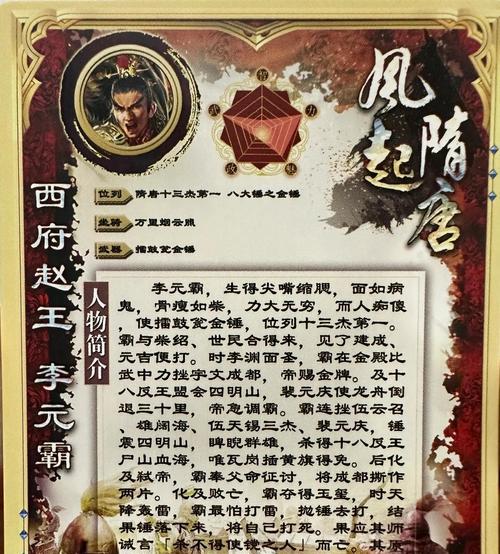 風起
隋唐
武
力
政
位列 隋唐十三杰第一 八大锤之金锤
坐骑 万里烟云照
武器 擂鼓瓮金锤
西府赵王 李元霸
人物简介
李元霸，生得尖嘴缩腮，面如病
鬼，骨瘦如柴，力大无穷，而人痴傻
，使擂鼓瓮金锤，位列十三杰第一。
霸与柴绍、世民合得来，见了建成、
元吉便打。时李渊面圣，霸在金殿比
武中力挫宇文成都，帝赐金牌。及十
八反王盟会四明山，裴元庆使龙舟倒
退三十里，帝急调霸。霸连挫伍云召
、雄阔海、伍天锡三杰、裴元庆，锤
震四明山，睥睨群雄，杀得十八反王
尸山血海，唯瓦岗插黄旗得免。后化
及弑帝，霸奉父命征讨，将成都撕作
两片。化及败亡，霸夺得玉玺，时天
降轰雷，霸最怕打雷，抛锤去打，结
果锤落下来，将自己打死。果应其师
诫言「杀不得使镋之人」而亡。其原